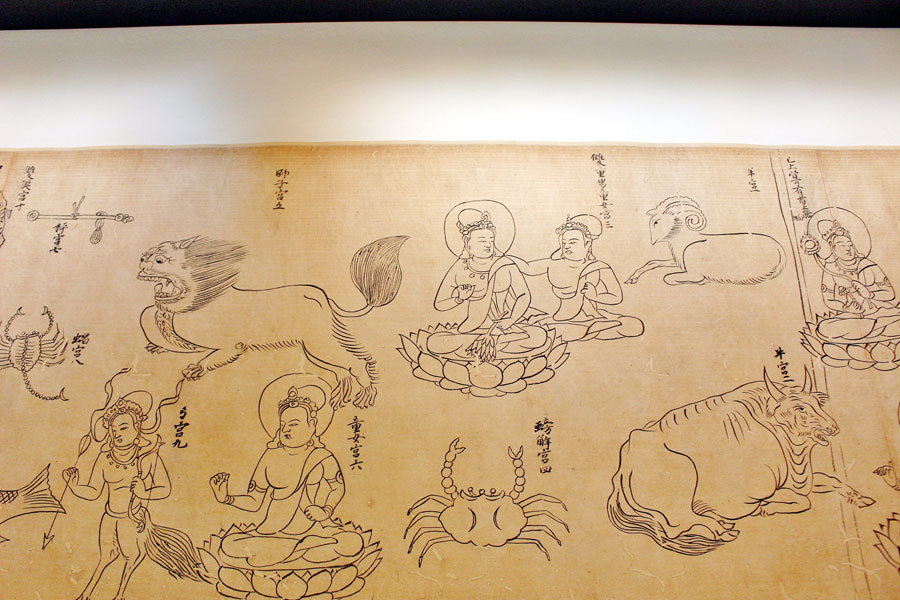 羊宮一
牛宮二
雙童男童女宮三
螃解宮四
師子宮五
童女宮六
秤宮七
蝎宮八
弓宮九
宮十